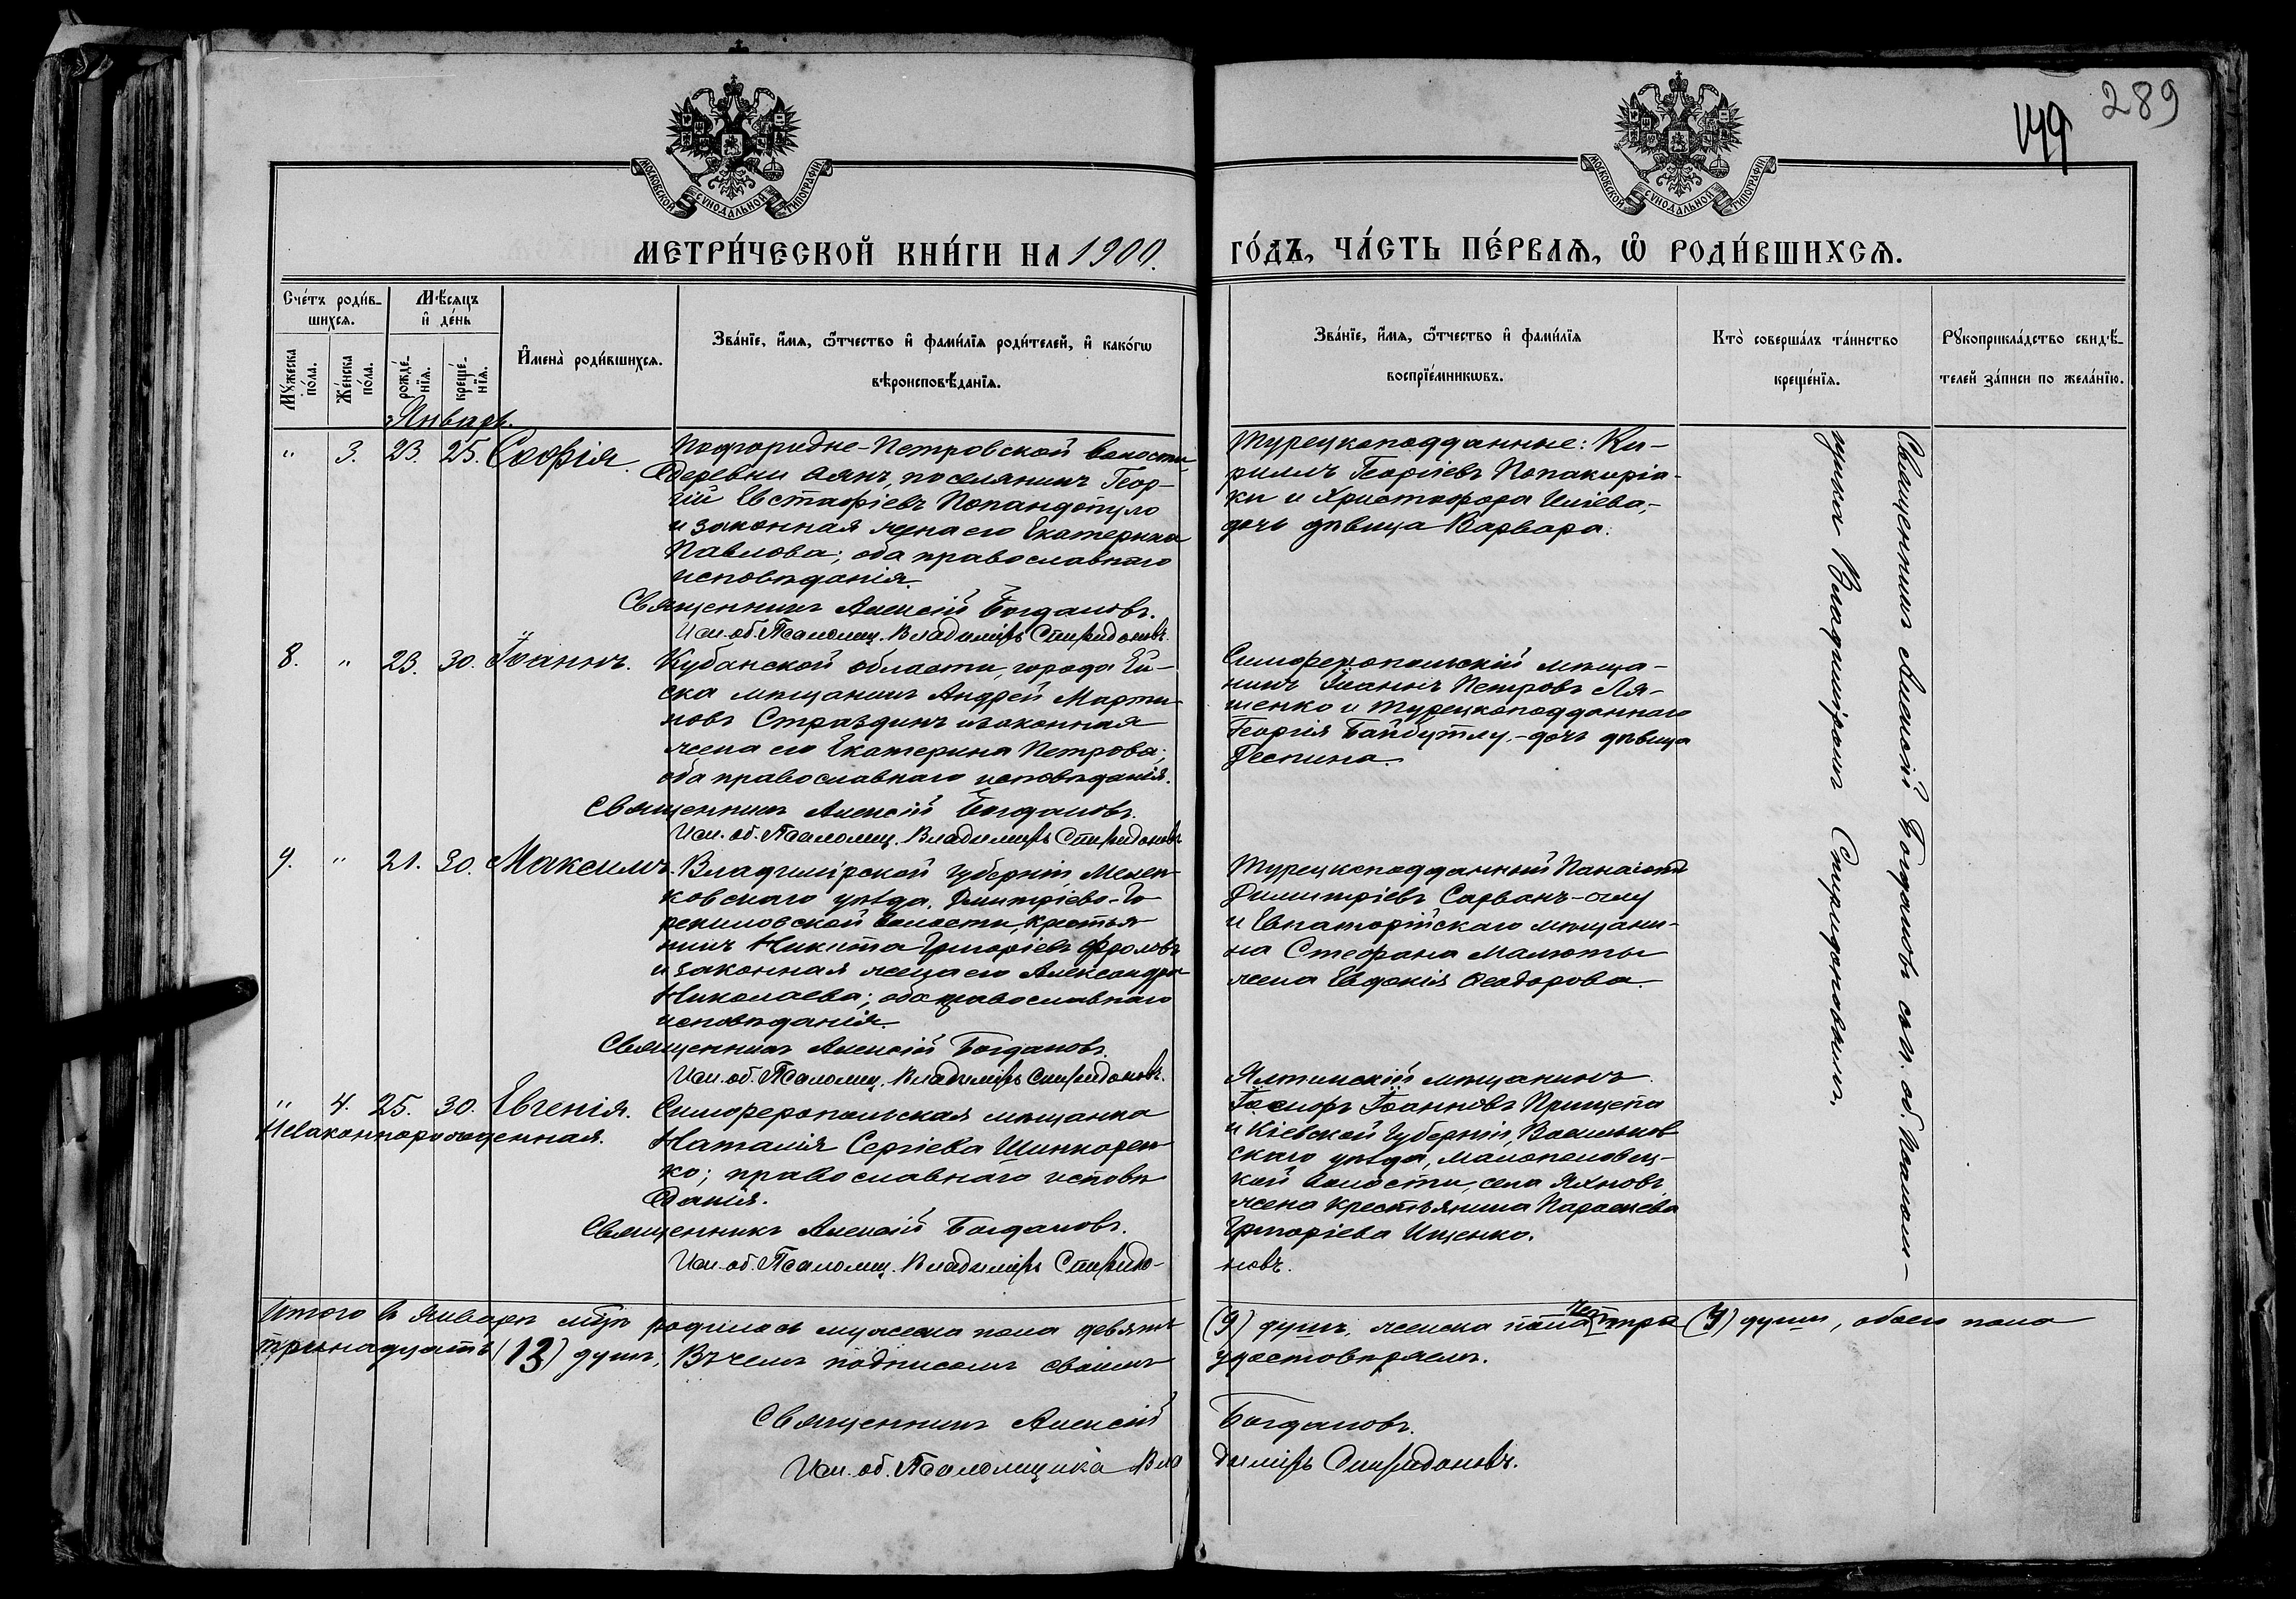 289
149
МОСКОВСКОЙ СѴНОДАЛЬНОЙ ТИПОГРАФІИ
МОСКОВСКОЙ СѴНОДАЛЬНОЙ ТИПОГРАФІИ
МЕТРИ́ЧЕСКОЙ КНИ́ГИ НА 1900.
ГО́ДЪ, ЧА́СТЬ ПЕ́РВАѦ, Ѡ҆ РОДИ́ВШИХСѦ.
Сче́тъ роди́в-
шихсѧ.
Мѣ́сѧцъ
и҆ де́нь
Мꙋ́жеска
по́ла.
Же́нска
по́ла.
рожде́-
нїѧ.
креще́-
нїѧ.
И҆мена̀ роди́вшихсѧ.
Зва́нїе, и҆́мѧ, ѻ҆́тчество и҆ фами́лїѧ роди́телей, и҆ како́гѡ
вѣроисповѣ́данїѧ.
Зва́нїе, и҆́мѧ, ѻ҆́тчество и҆ фами́лїѧ
воспрїе́мникѡвъ.
Кто̀ соверша́лъ та́инство
креще́нїѧ.
Рꙋкоприкла́дство свидѣ́-
телей за́писи по жела́нїю.
Январь.
" 3. 23. 25. Софія.
Подгородне-Петровской волости,
деревни Аянъ, поселянинъ Геор-
гій Евстафіевъ Попандопуло
и законная жена его Екатерина
Павлова; оба православнаго
исповѣданія.
Священникъ Алексій Богдановъ.
Исп. об. Псаломщ. Владиміръ Спиридоновъ.
Турецкоподданные: Ки-
риллъ Георгіевъ Попакиріа-
ки и Христофора Иліева,-
дочь дѣвица Варвара.
8. " 23. 30. Іоаннъ.
Кубанской области, города Ей-
ска мѣщанинъ Андрей Марти-
новъ Страздинъ и законная
жена его Екатерина Петрова;
оба православнаго исповѣданія.
Священникъ Алексій Богдановъ.
Исп. об. Псаломщ. Владиміръ Спиридоновъ
Симферопольскій мѣща-
нинъ Іоаннъ Петровъ Ля-
шенко и турецкоподданнаго
Георгія Байбутлу,-дочь дѣвица
Деспина.
9. " 21. 30. Максимъ.
Владимірской губерніи, Мелен-
ковскаго уѣзда, Дмитріево-Го-
волости, крестья-
нинъ Никита Григоріевъ Фроловъ
и законная жена его Александра
Николаева; оба православнаго
исповѣданія.
Священникъ Алексій Богдановъ.
Исп. об. Псаломщ. Владиміръ Спиридоновъ.
Турецкоподданный Панаіотъ
Димитріевъ Сарванъ-оглу
и Евпаторійскаго мѣщани-
на Стефана Малюты
жена Евдокія Ѳеодорова.
" 4. 25. 30. Евгенія.
Незаконнорожденная.
Симферопольская мѣщанка
Наталія Сергіева Шинкорен-
ко; православнаго исповѣ-
данія.
Священникъ Алексій Богдановъ.
Исп. об. Псаломщ. Владиміръ Спиридо-
новъ.
Ялтинскій мѣщанинъ
Іосифъ Іоанновъ Прищепа
и Кіевской губерніи, Васильков-
скаго уѣзда, Малополовец-
кой волости, села Яхновъ
жена крестьянина Параскева
Григоріева Ищенко.
Священникъ Алексій Богдановъ съ и. об. Псалом-
щика Владиміромъ Спиридоновымъ.
Итого въ Январѣ мѣсяцѣ родилось мужеска пола девять (9) душъ, женска пола четыре (4) души, обоего пола
тринадцать (13) душъ; Въ чемъ подписомъ своимъ удостовѣряемъ.
Священникъ Алексій Богдановъ.
Исп. об. Псаломщика Владиміръ Спиридоновъ.